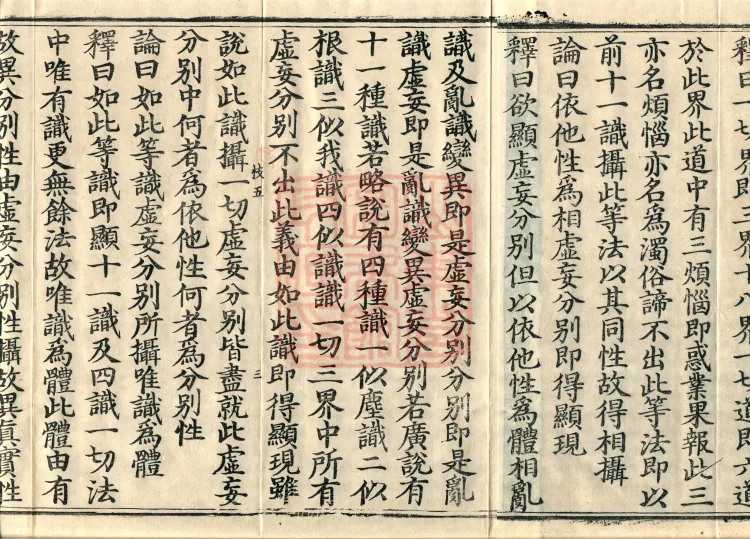 釋曰一切界即三界十八界一切道即六道
於此界此道中有三煩惱即惑業果報此三
亦名煩惱亦名為濁俗諦不出此等法即以
前十一識攝此等法以其同性故得相攝
論曰依他性為相虛妄分別即得顯現
釋曰欲顯虛妄分別但以依他性為體相亂
識及亂識變異即是虛妄分別分別即是亂
識虛妄即是亂識變異虛妄分別若廣說有
十一種識若略說有四種識一似塵識二似
根識三似我識四似識識一切三界中所有
虛妄分別不出此義由如此識即得顯現雖
說如此識攝一切虛妄分別皆盡就此虛妄
枝五
三
分別中何者為依他性何者為分別性
論曰如此等識虛妄分別所攝唯識為體
釋曰如此等識即顯十一識及四識一切法
中唯有識更無餘法故唯識為體此體由有
故異分別性由虛妄分別性攝故異真實性